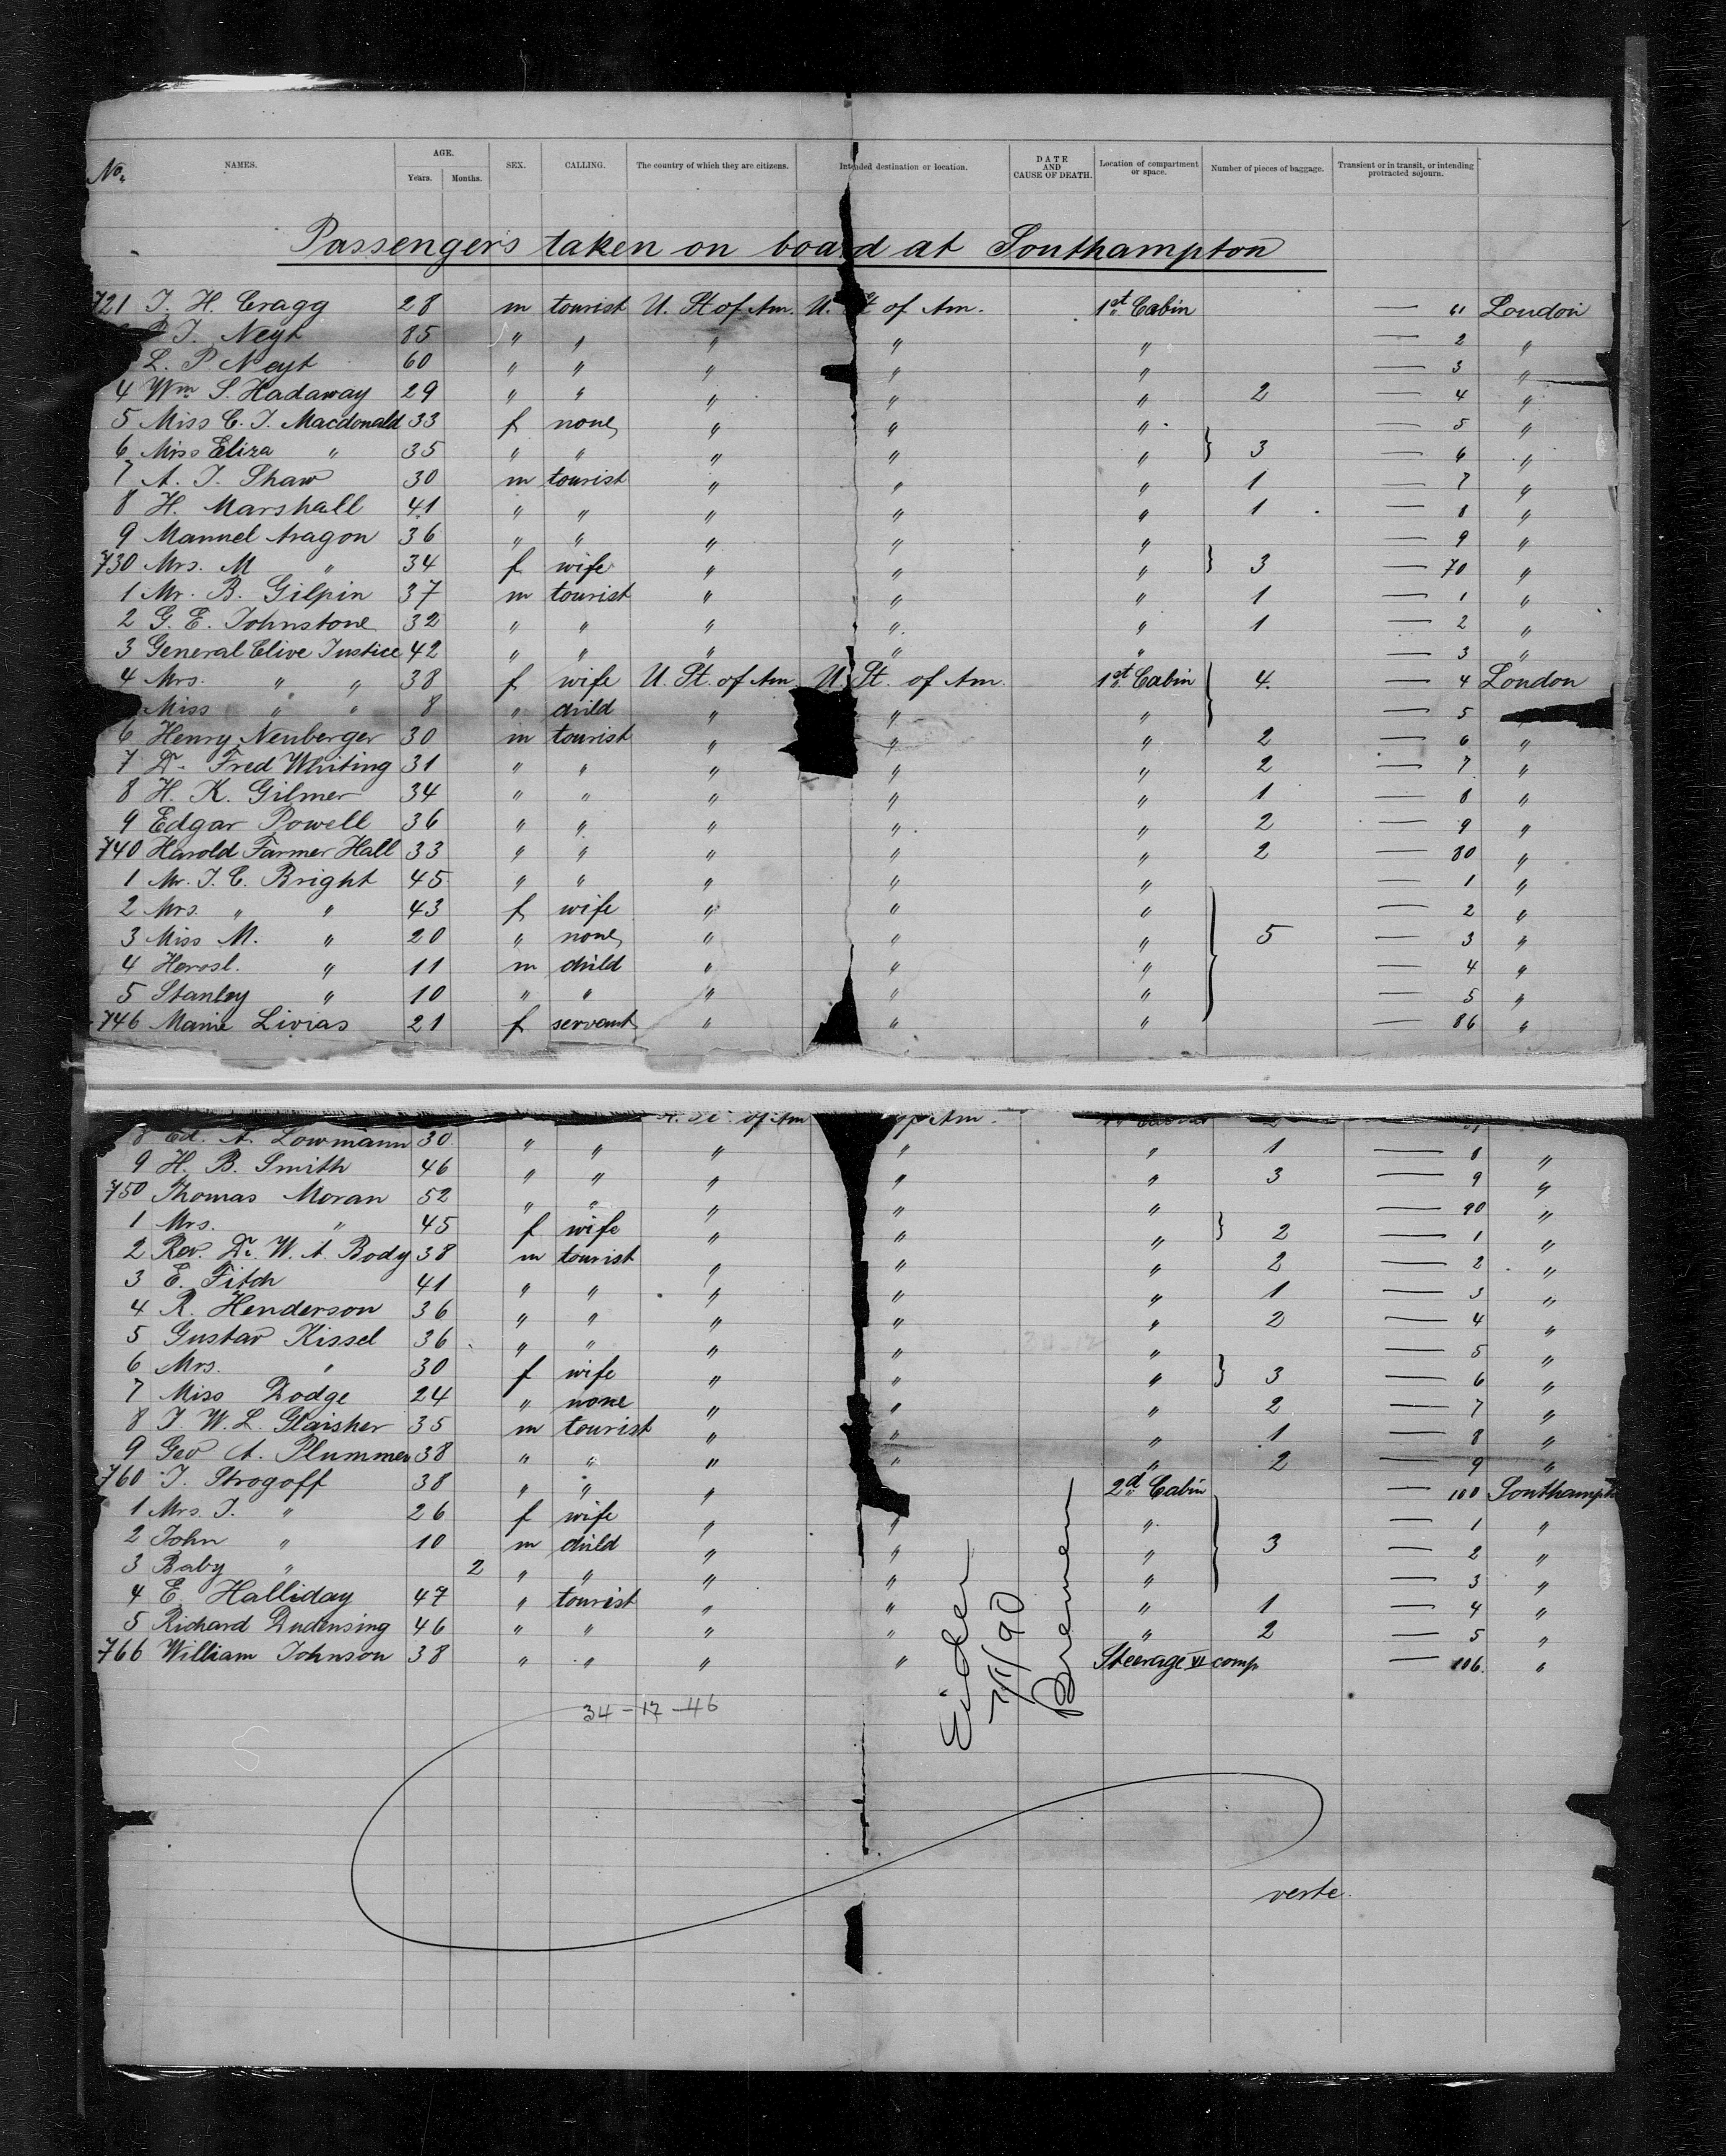 No. NAMES. AGE. Years. Months. SEX. CALLING. The country of which they are citizens. Intended destination or location. DATE AND CAUSE OF DEATH. Location of compartment or space. Number of pieces of baggage. Transient or in transit, or intending protracted sojourn.
Passengers taken on board at Southampton
721 J. H. Cragg 28 m tourist U. St of Am. U. St of Am. 1st Cabin — 61 London
J. Neyt 85 " " " " " — 2 "
L. P. Neyt 60 " " " " " — 3 "
4 Wm S. Hadaway 29 " " " " " 2 — 4 "
5 Miss C. J. Macdonald 33 f none " " " — 5 "
6 Miss Eliza " 35 " " " " " } 3 — 6 "
7 A. J. Shaw 30 m tourist " " " 1 — 7 "
8 H. Marshall 41 " " " " " 1 — 8 "
9 Manuel Aragon 36 " " " " " — 9 "
730 Mrs. M " 34 f wife " " " } 3 — 70 "
1 Mr. B. Gilpin 37 m tourist " " " 1 — 1 "
2 G. E. Johnstone 32 " " " " " 1 — 2 "
3 General Clive Justice 42 " " " " " — 3 "
4 Mrs. " " 38 f wife U. St. of Am U. St. of Am. 1st Cabin 4. — 4 London
Miss " " 8 " child " " " — 5
6 Henry Neuberger 30 m tourist " " " 2 — 6 "
7 Dr. Fred Whiting 31 " " " " " 2 — 7 "
8 H. K. Gilmer 34 " " " " " 1 — 8 "
9 Edgar Powell 36 " " " " " 2 — 9 "
740 Harold Farmer Hall 33 " " " " " 2 — 80 "
1 Mr. J. C. Bright 45 " " " " " — 1 "
2 Mrs. " " 43 f wife " " " — 2 "
3 Miss M. " 20 " none " " " 5 — 3 "
4 " 11 m child " " " — 4 "
5 Stanley " 10 " " " " " — 5 "
746 Marie Livias 21 f servant " " " — 86 "
of Am of Am.
8 Ed. A. Lowmann 30 " " " " " 1 — 8 "
9 H. B. Smith 46 " " " " " 3 — 9 "
750 Thomas Moran 52 " " " " " — 90 "
1 Mrs. " 45 f wife " " " } 2 — 1 "
2 Rev. Dr. W. A. Body 38 m tourist " " " 2 — 2 "
3 E. Fitch 41 " " " " " 1 — 3 "
4 R. Henderson 36 " " " " " 2 — 4 "
5 Gustav Kissel 36 " " " " " — 5 "
6 Mrs. " 30 f wife " " " } 3 — 6 "
7 Miss Dodge 24 " none " " " 2 — 7 "
8 J. W. L. Glaisher 35 m tourist " " " 1 — 8 "
9 Geo A. Plummer 38 " " " " " 2 — 9 "
760 J. Strogoff 38 " " " 2d Cabin — 100 Southampt
1 Mrs. J. " 26 f wife " " " — 1 "
2 John " 10 m child " " " 3 — 2 "
3 Baby " 2 " " " " " — 3 "
4 E. Halliday 47 " tourist " " " 1 — 4 "
5 Richard Dudensing 46 " " " " " 2 — 5 "
766 William Johnson 38 " " " " Steerage VI comp — 106. "
34 - 17 - 46
Eider
7/1/90
Bremen
verte.